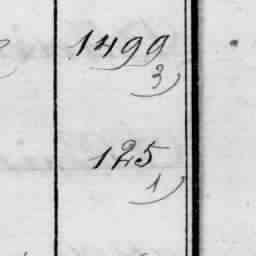 1499
3
125
1